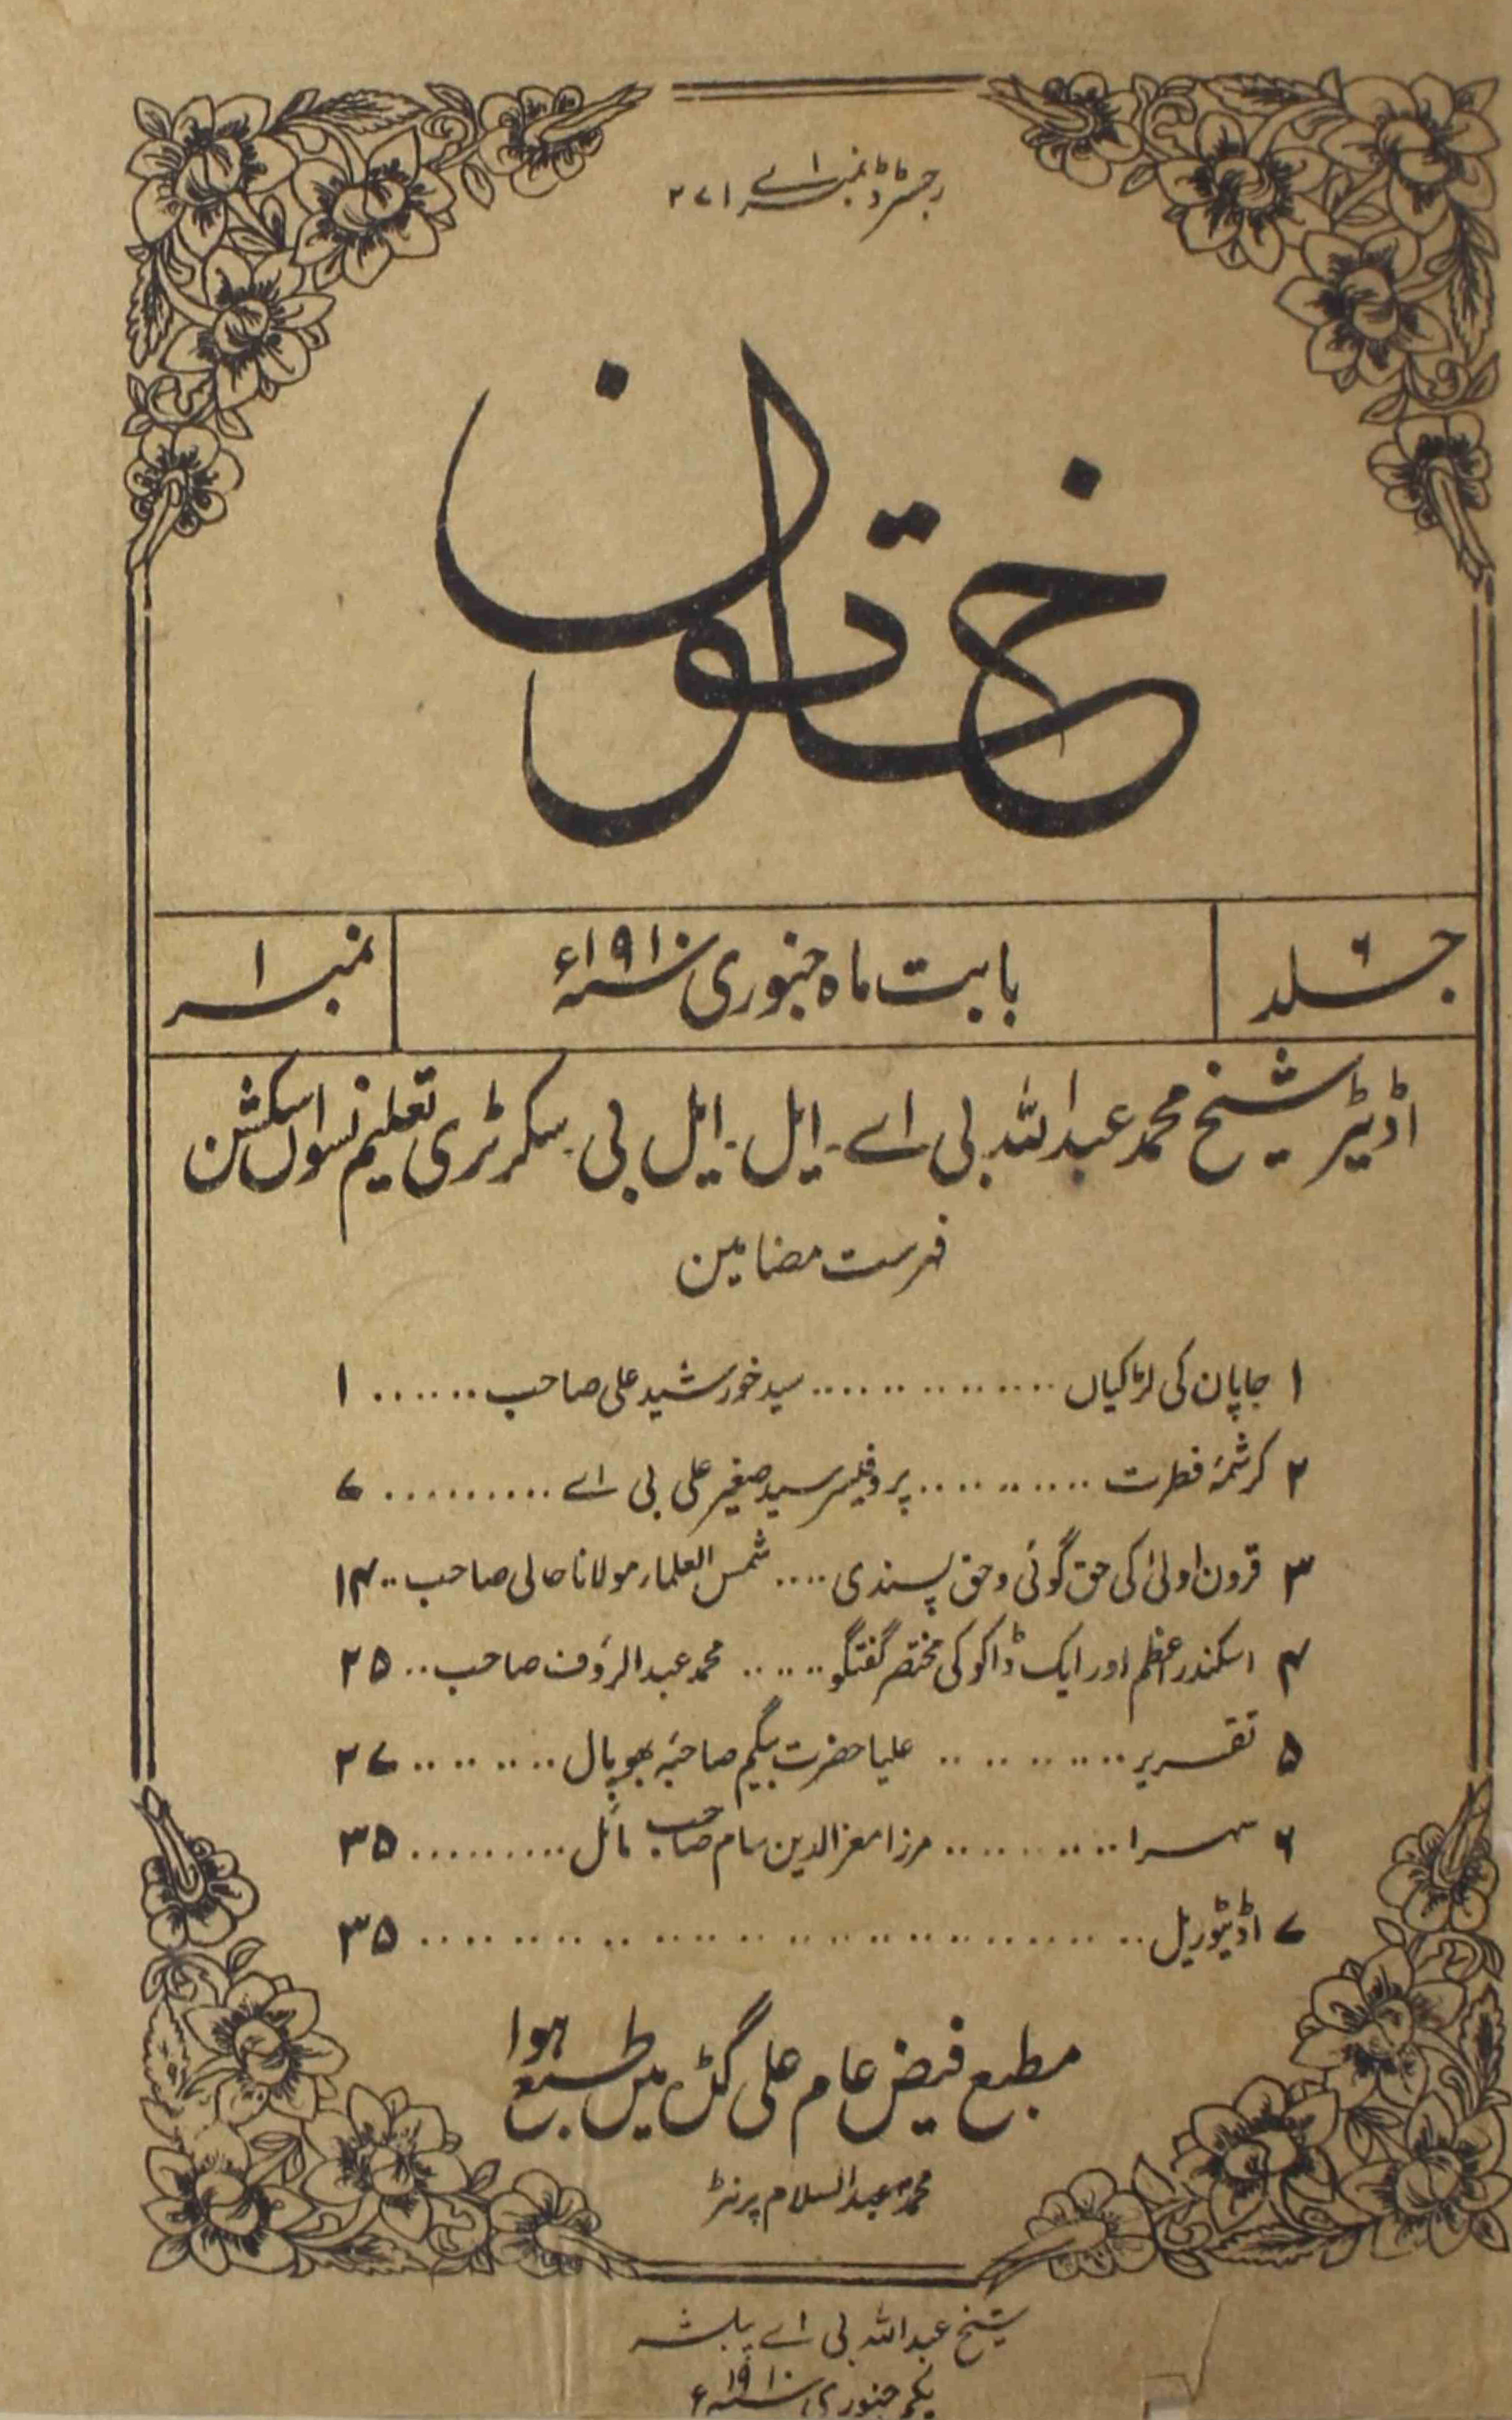 رجسٹرڈ نمبر اے ۲۷۱
خاتون
جلد ۶
بابت ماہ جنوری سنہ ۱۹۱۰ء
نمبر ۱
اڈیٹر شیخ محمد عبداللہ بی اے۔ ایل۔ ایل بی۔ سکرٹری تعلیم نسواں سکشن
فہرست مضامین
۱ جاپان کی لڑکیاں .............. سید خورشید علی صاحب ...... ۱
۲ کرشمۂ فطرت .......... پروفیسر سید صغیر علی بی اے ......... ۷
۳ قرون اولیٰ کی حق گوئی و حق پسندی .... شمس العلماء مولانا حالی صاحب .. ۱۴
۴ اسکندر اعظم اور ایک ڈاکو کی مختصر گفتگو ...... محمد عبدالرؤف صاحب .. ۲۵
۵ تقریر .......... علیا حضرت بیگم صاحبۂ بھوپال ........ ۲۷
۶ سہرا .......... مرزا معز الدین سام صاحب مائل ......... ۳۵
۷ اڈیٹوریل .............................. ۳۵
مطبع فیض عام علی گڑہ میں طبع ہوا
محمد عبدالسلام پرنٹر
شیخ عبداللہ بی اے پبلشر
یکم جنوری سنہ ۱۹۱۰ء